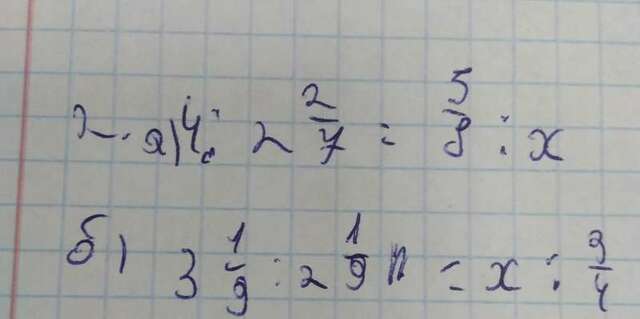 2. а) 4 : 2 2/7 = 5/9 : x
б) 3 1/9 : 2 1/9 = x : 3/4